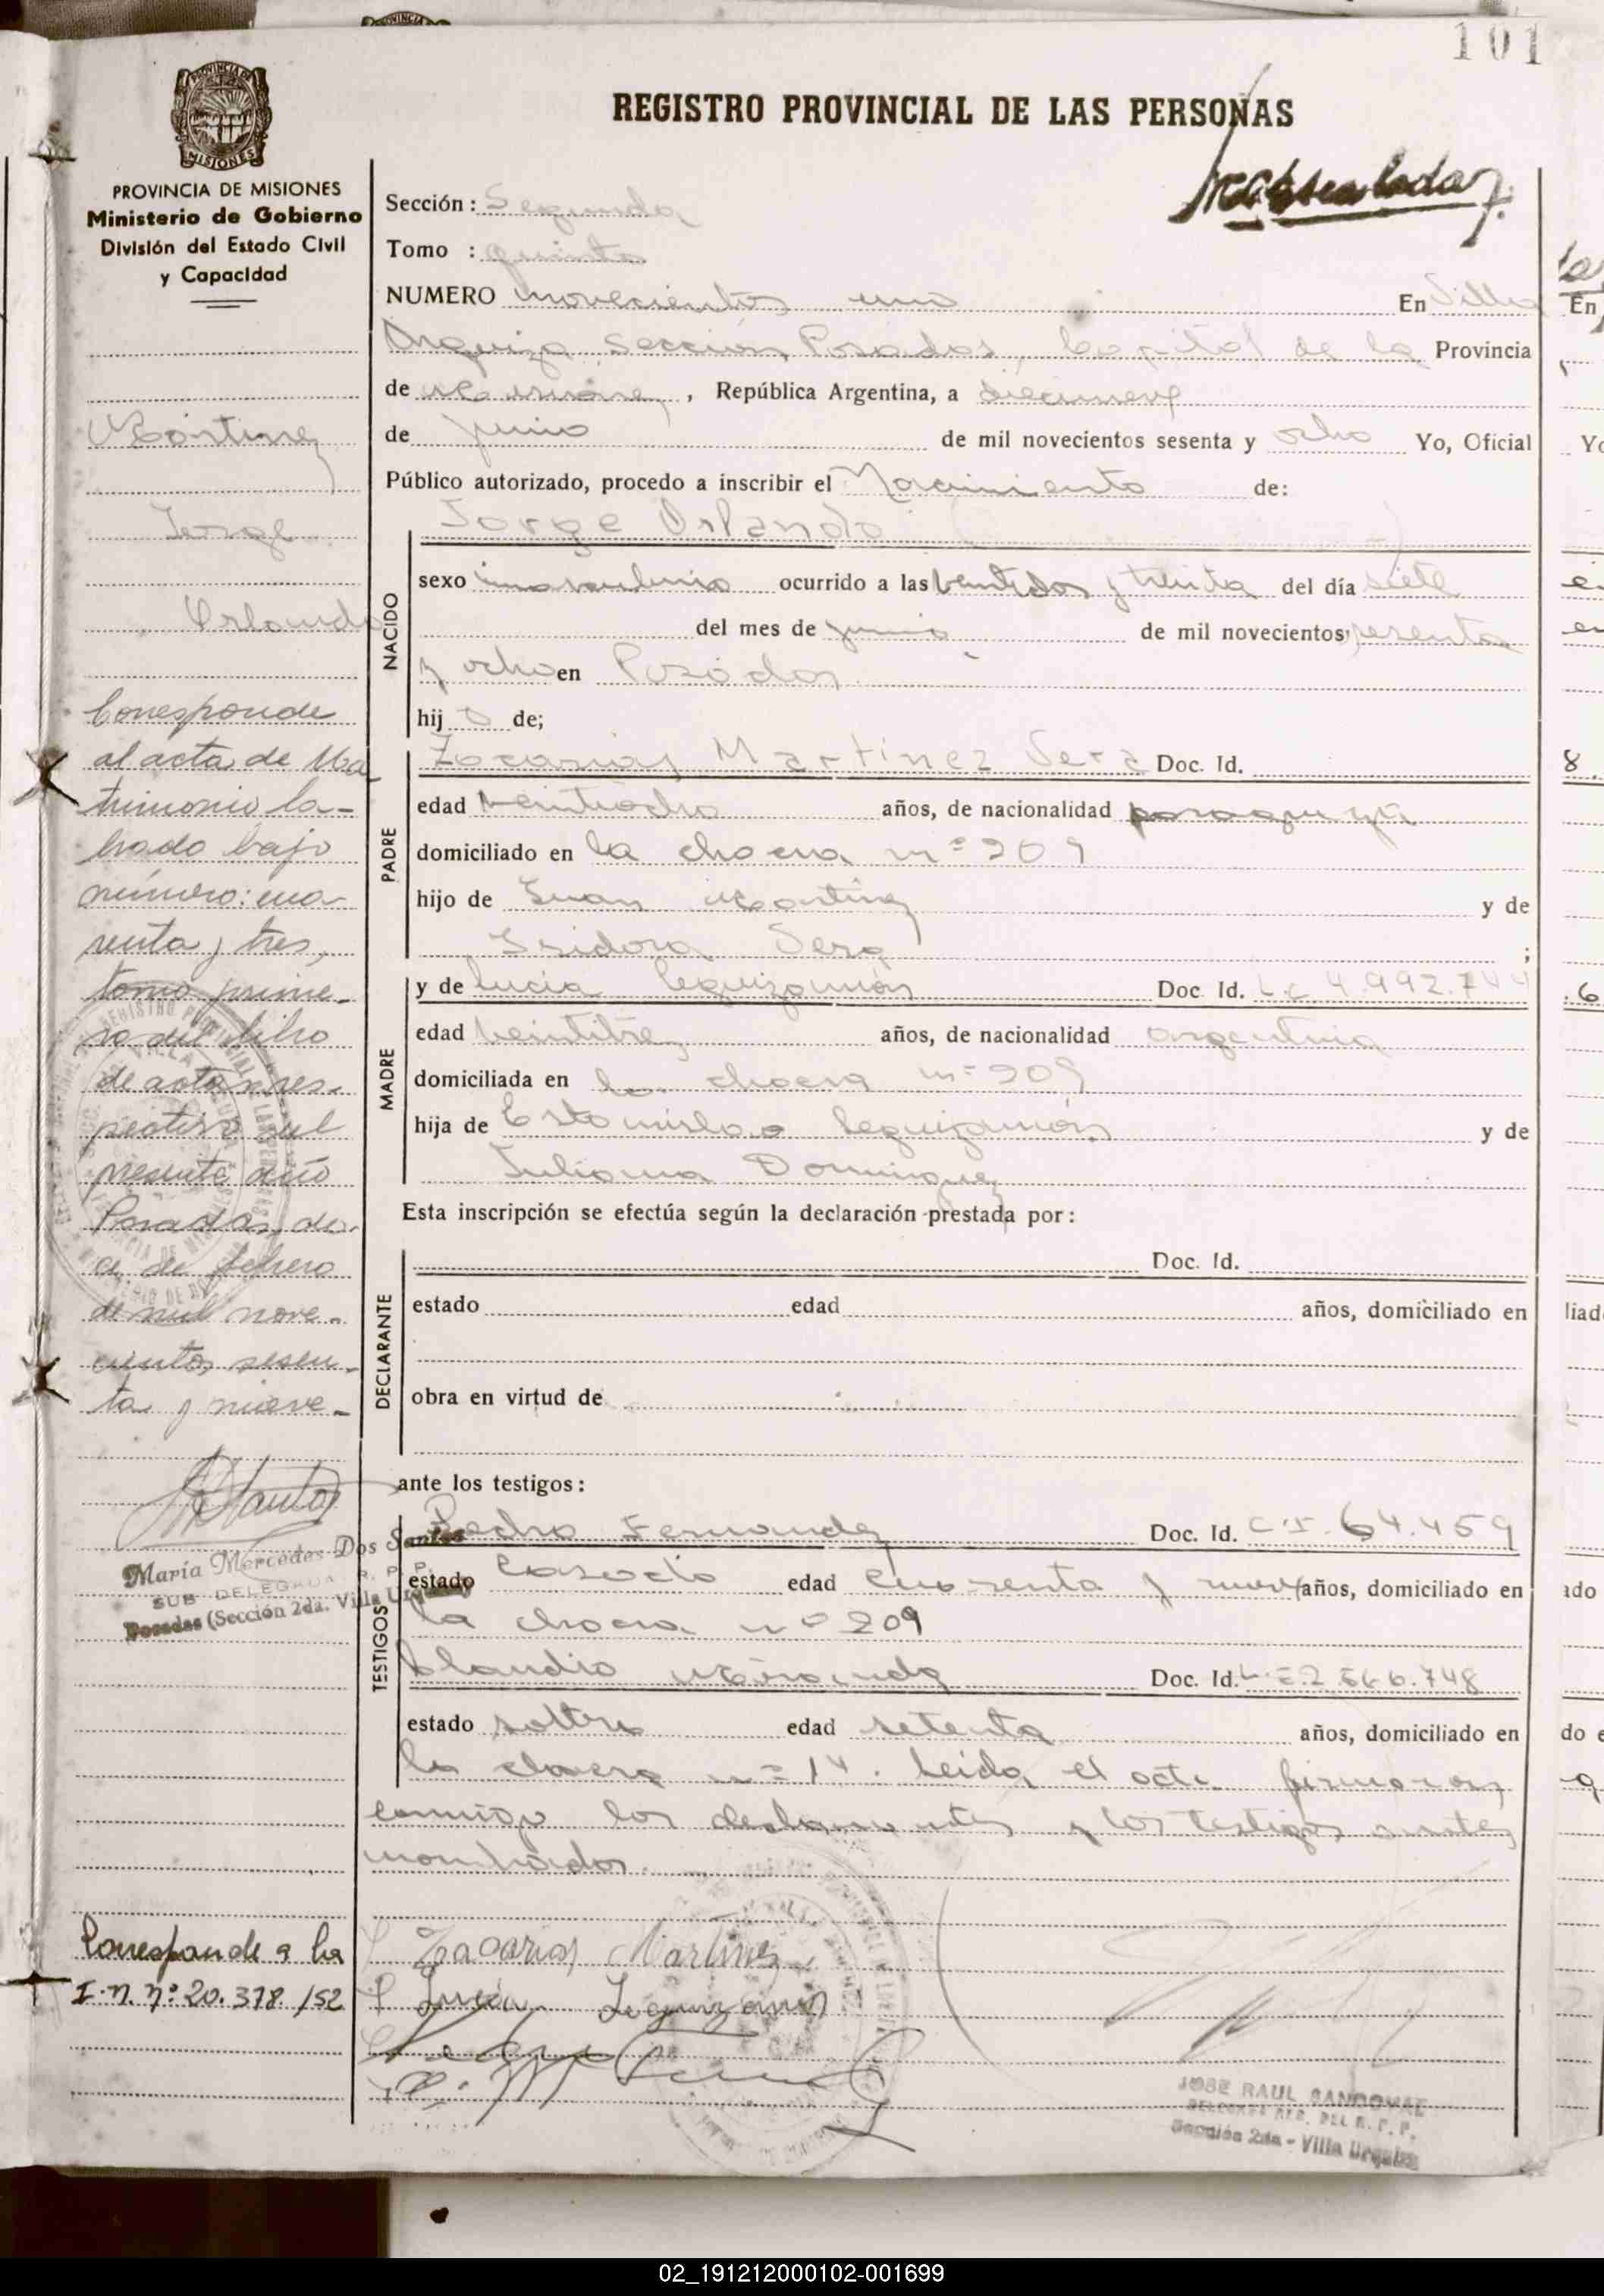 101
PROVINCIA DE MISIONES
REGISTRO PROVINCIAL DE LAS PERSONAS
PROVINCIA DE MISIONES
Ministerio de Gobierno
División del Estado Civil
y Capacidad
Sección: Segunda
Tomo : quinto
NUMERO novecientos uno En Villa
Urquiza Sección Posadas, Capital de la Provincia
de Misiones, República Argentina, a diecinueve
de junio de mil novecientos sesenta y ocho Yo, Oficial
Público autorizado, procedo a inscribir el Nacimiento de:
Martinez
Jorge
Orlando
NACIDO
Jorge Orlando
sexo masculino ocurrido a las veintidos y treinta del día siete
del mes de junio de mil novecientos sesenta
y ocho en Posadas
hij o de;
PADRE
Zacarias Martinez Vera Doc. Id.
edad veintiocho años, de nacionalidad paraguaya
domiciliado en la chacra nº 209
hijo de Juan Martinez y de
Isidora Vera ;
MADRE
y de Lucia Leguizamón Doc Id. L.C 4.992.744
edad veintitres años, de nacionalidad argentina
domiciliada en la chacra nº 209
hija de Estanislao Leguizamón y de
Juliana Dominguez
Esta inscripción se efectúa según la declaración prestada por:
DECLARANTE
Doc. Id.
estado edad años, domiciliado en
obra en virtud de
ante los testigos:
TESTIGOS
Pedro Fernandez Doc. Id. C.I. 64.459
estado casado edad cuarenta y nueve años, domiciliado en
la chacra nº 209
Claudio Miranda Doc. Id. L.E. 2.566.748
estado soltero edad setenta años, domiciliado en
la chacra nº 14. Leida el acta firmaron
conmigo los declarantes y los testigos antes
nombrados.
Corresponde
al acta de Ma
trimonio la-
brado bajo
número: cua-
renta y tres,
tomo prime-
ro del libro
de actas res-
pectivo del
presente año
Posadas, do-
ce de febrero
de mil nove-
cientos sesen-
ta y nueve.-
María Mercedes Dos Santos
SUB DELEGADA R. P. P.
Posadas (Sección 2da. Villa Urquiza)
Corresponde a la
I.N. Nº: 20.378/52
Zacarias Martinez
Lucia Leguizamón
JOSE RAUL SANDOVAL
DELEGADO REG. DEL R. P. P.
Sección 2da - Villa Urquiza
02_191212000102-001699